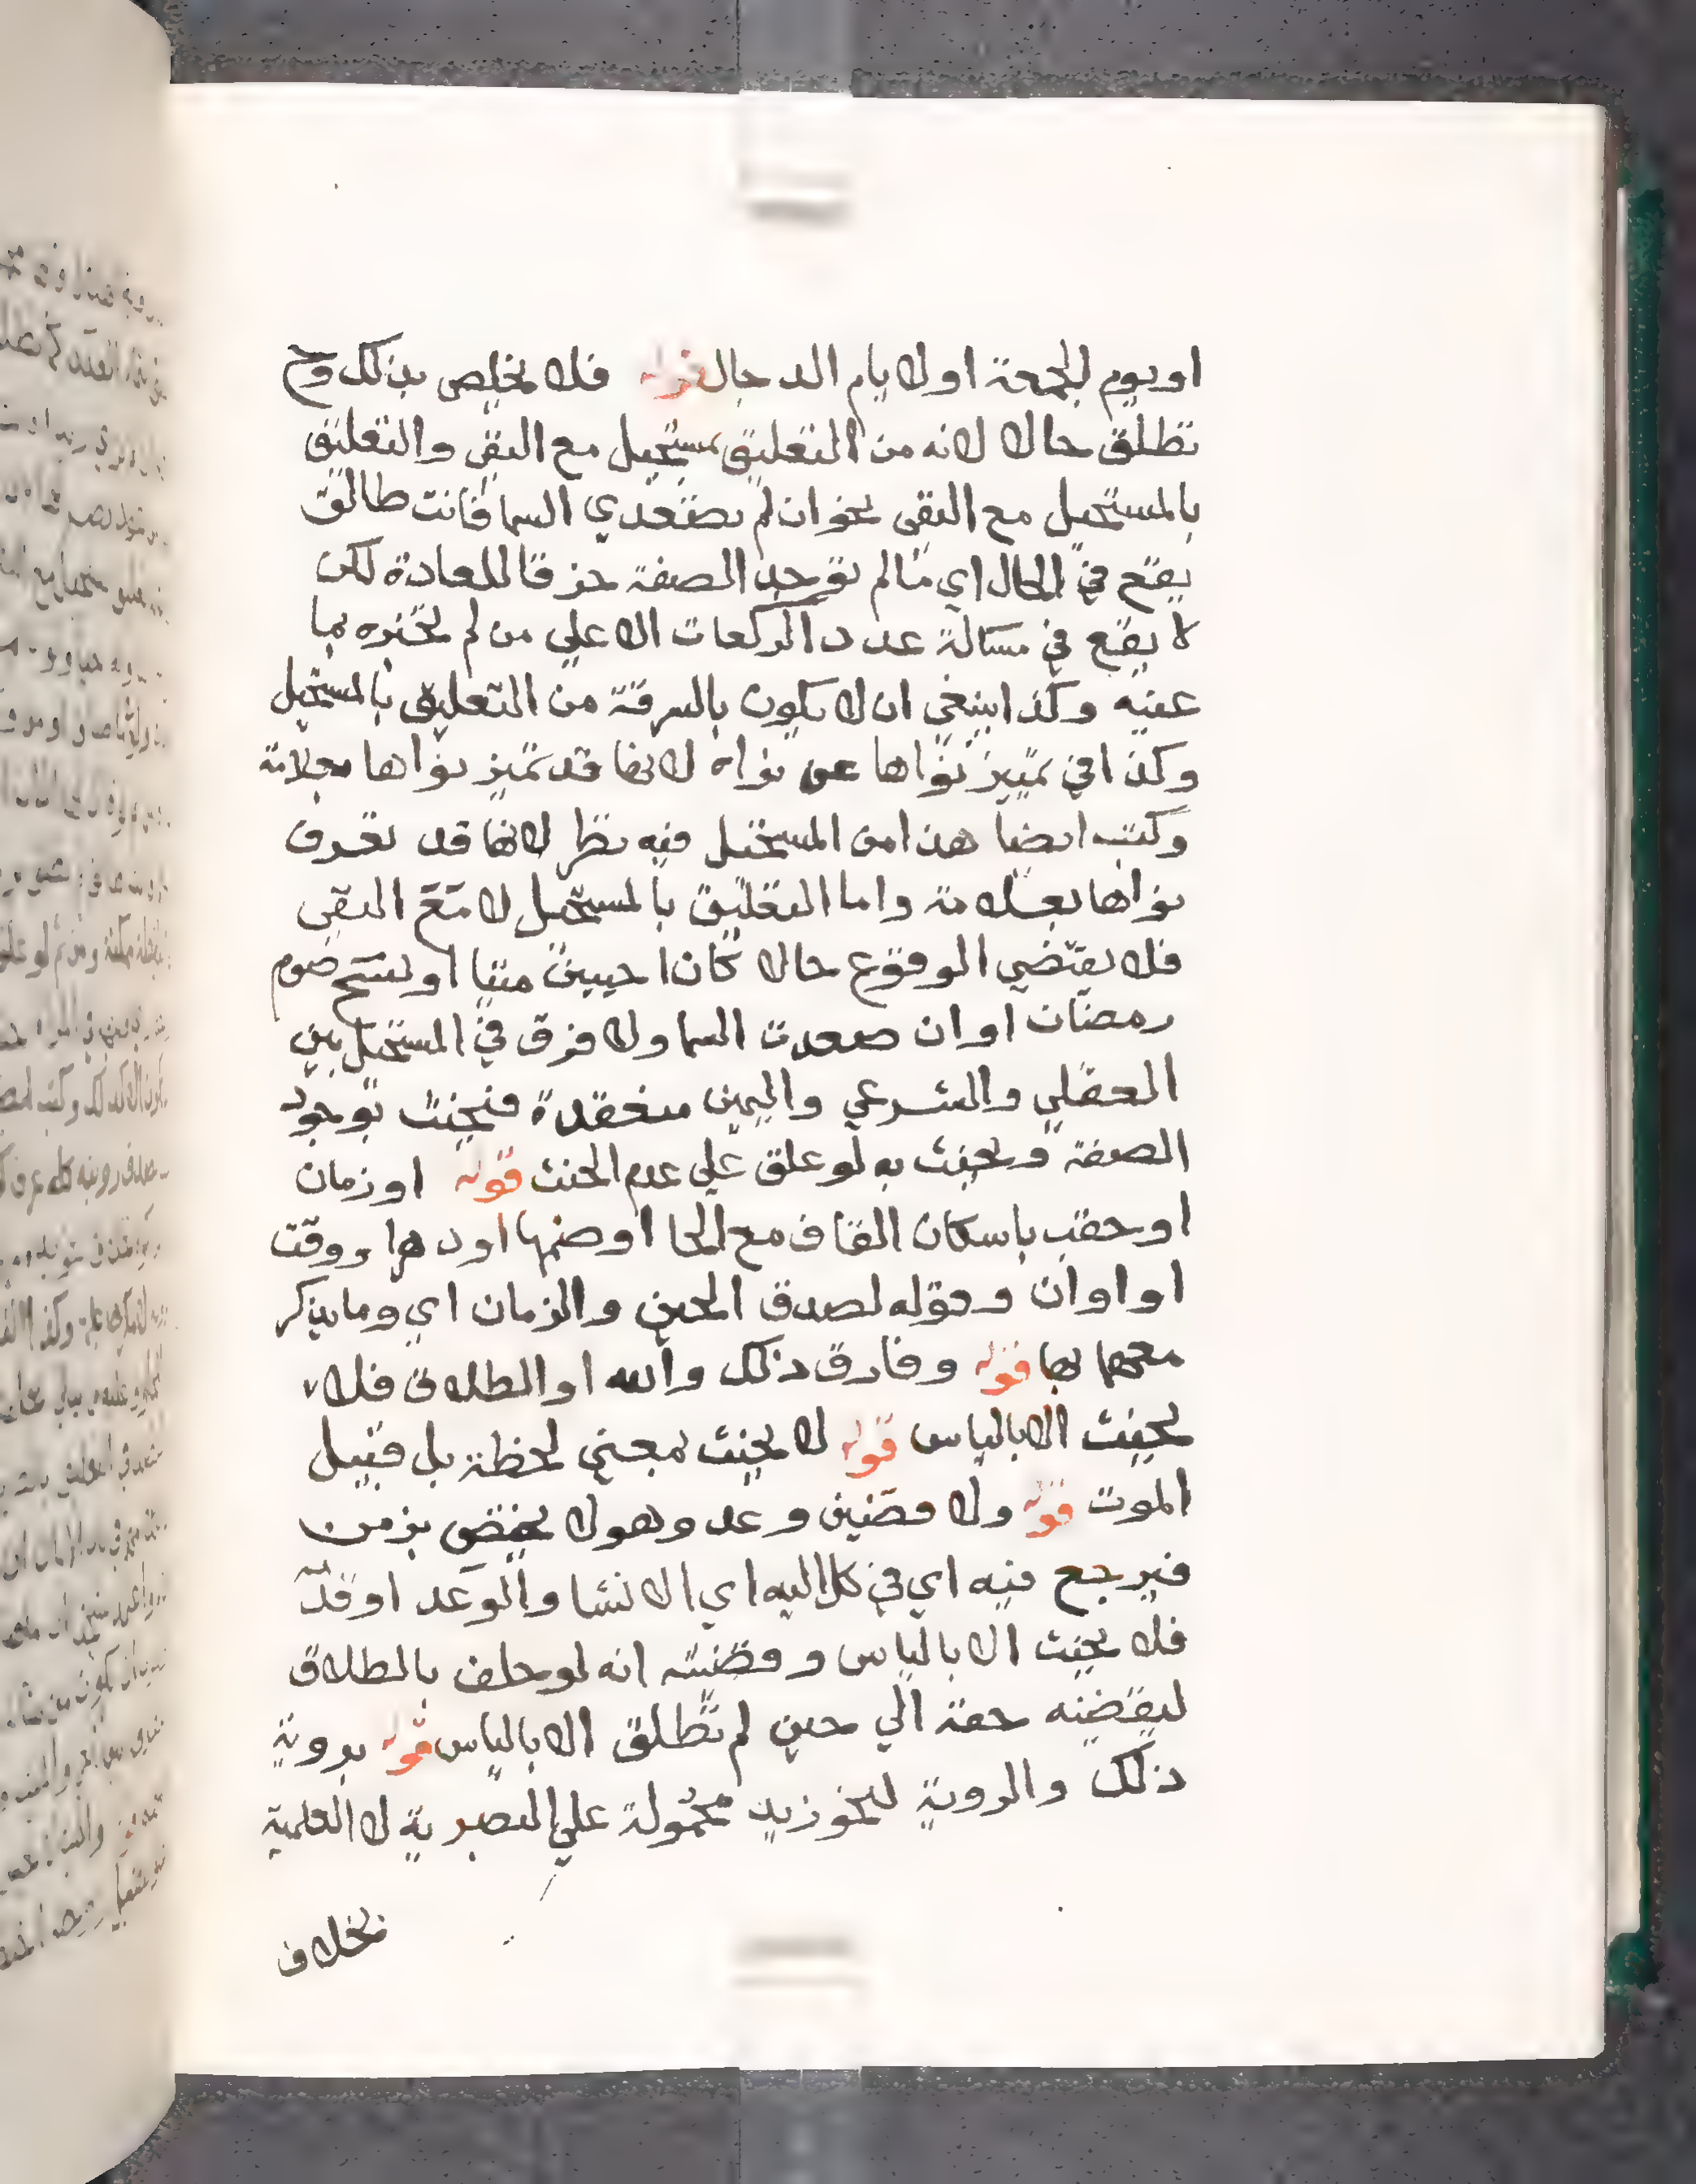 او يوم الجمعة او لايام الدجال قوله فلا يخلص بذلك وح
تطلق حالا لانه من التعليق بمستحيل مع النفي والتعليق
بالمستحيل مع النفي نحو ان لم تصعدي السما فانت طالق
يقع في الحال اي ما لم توجد الصفة خرقا للعادة لكن
لا يقع في مسالة عدد الركعات الا علي من لم تخبره بما
عنيه وكذا ينبغي ان لا يكون بالسرقة من التعليق بالمستحيل
وكذا في تمييز نواها عن نواه لانها قد تميز نواها بعلامة
وكتب ايضا هذا من المستحيل فيه نظر لانها قد تعرف
نواها بعلامة واما التعليق بالمستحيل لا مع النفي
فلا يقتضي الوقوع حالا كان احييت ميتا او نسخ صوم
رمضان او ان صعدت السما ولا فرق في المستحيل بين
العقلي والشرعي واليمين منعقدة فيحنث بوجود
الصفة ويحنث به لو علق علي عدم الحنث قوله او زمان
او حقب باسكان القاف مع الحا او ضمها او دهر او وقت
او اوان وقوله لصدق الحين والزمان اي وما يذكر
معهما بها قوله وفارق ذلك والله او الطلاق فلا
يحنث الا بالياس قوله لا يحنث بمجني لحظة بل قبيل
الموت قوله ولا قضين وعد وهو لا يختص بزمن
فيرجع فيه اي في كل اليه اي الانشا والوعد او قدته
فلا يحنث الا بالياس وقضيته انه لو حلف بالطلاق
ليقضينه حقه الي حين لم تطلق الا بالياس قوله بروية
ذلك والروية لنحو زيد محمولة علي البصرية لا العلمية
بخلاف